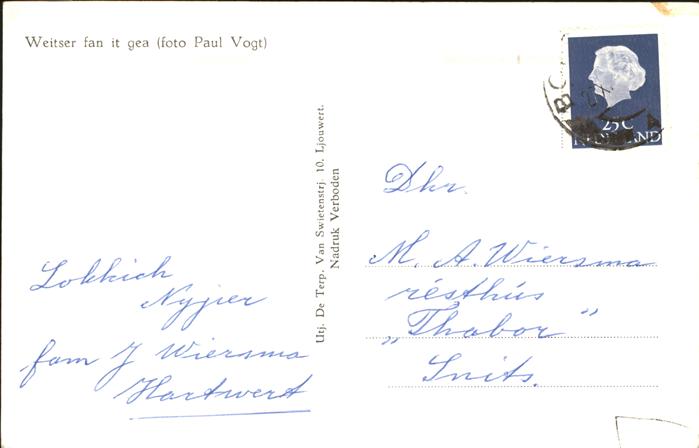 Weitser fan it gea (foto Paul Vogt)
25 C
NEDERLAND
Utj. De Terp, Van Swietenstrj. 10, Ljouwert.
Nadruk Verboden
Lokkich
Nyjier
fam J Wiersma
Hartwert
Dhr.
M. A. Wiersma
résthús
„Thabor"
Snits.